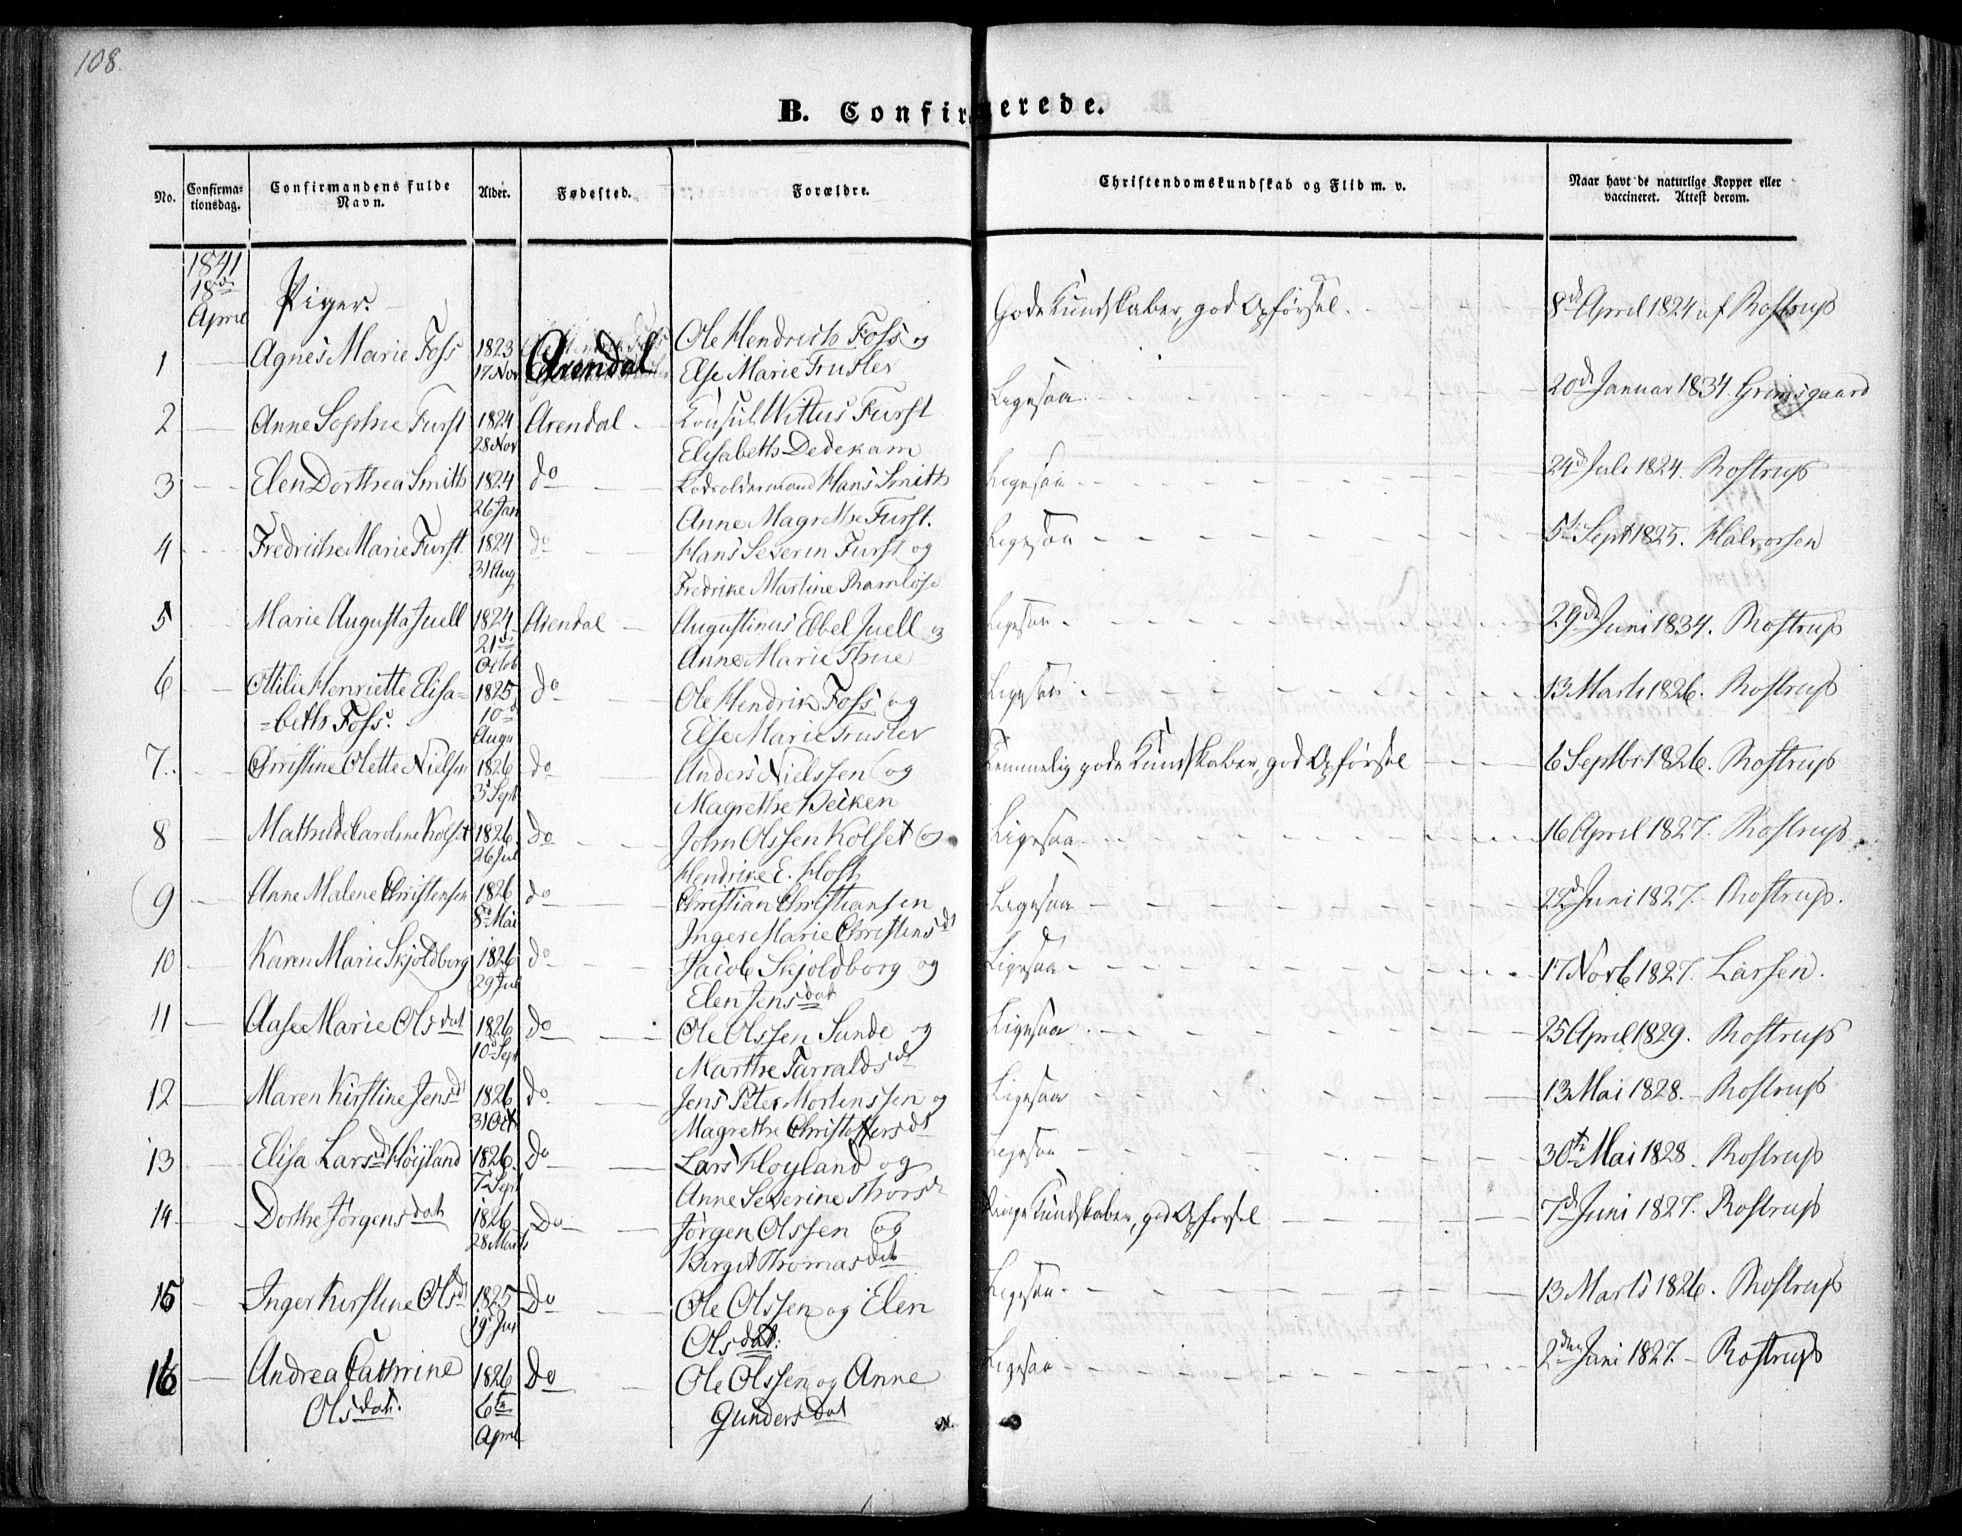 108.
B. Confirmerede.
No. Confirmationsdag. Confirmandens fulde Navn. Alder. Fødested. Forældre. Christendomskundskab og Flid m. v. Naar havt de naturlige Kopper eller vaccineret. Attest derom.
1841
18de April Piger.
1 Agnes Marie Foss 1823 17 Nov Arendal Ole Hendrich Foss og Else Marie Truster Gode Kundskaber, god Opførsel. 8d April 1824 af Rostrup
2 Anne Sophie Furst 1824 28 Nov Arendal Konsul Wittus Furst Elisabeth Dedekam Ligesaa 20d Januar 1834 Grimsgaard
3 Elen Dorthea Smith 1824 26 Jan do Lodsoldermand Hans Smith Anne Magrethe Furst. Ligesaa 24d Juli 1824. Rostrup
4 Fredriche Marie Furst 1824 31 Aug do Hans Severin Furst og Fredrike Martine Ramløse Ligesaa 5t Sept 1825. Halvorsen
5 Marie Augusta Juell 1824 21de Octob Arendal Augustinus Ebbel Juell og Anne Marie Thrue Ligesaa 29d Juni 1834. Rostrup
6 Ottilie Henriette Elisa-
beth Foss. 1825 10d Augu do Ole Hendrik Foss og Else Marie Truster Ligesaa 13 Marts 1826. Rostrup
7 Christine Olette Nielsen 1826 3 Sept do Anders Nielssen og Magrethe Decken Temmelig gode Kundskaber, god Opførsel 6 Septbr 1826. Rostrup
8 Mathilde Caroline Kolset 1826 26 Jul do John Olssen Kolset og Hendrike E. Holst Ligesaa 16 April 1827. Rostrup
9 Anne Malene Christensen 1826 8d Mai do Christian Christiansen Inger Marie Christensdt Ligesaa 22d Juni 1827. Rostrup.
10 Karen Marie Skjoldborg 1826 29 Jul do Jacob Skjoldborg og Elen Jensdat Ligesaa 17 Novb 1827. Larsen.
11 Aase Marie Olsdat 1826 10d Sept do Ole Olssen Sunde og Marthe Tarraldsdt Ligesaa 25 April 1829. Rostrup
12 Maren Kirstine Jensd 1826 31 Oct do Jens Peter Mortenssen og Magrethe Christoffersdt Ligesaa 13 Mai 1828. Rostrup
13 Elisa Larsd Høyland 1826. 7 Sept Do Lars Hoyland og Anne Severine Thorsdt Ligesaa 30te Mai 1828. Rostrup
14 Dorthe Jørgensdat 1826 28 Marts Do Jørgen Olssen og Birgit Thomasdat Ringe Kundskaber, god Opførsel 7d Juni 1827. Rostrup
15 Inger Kirstine Olsdt 1825 19 Jul Do Ole Olssen og Elen Olsdat. Ligesaa 13 Marts 1826. Rostrup
16 Andrea Cathrine Olsdat. 1826 6te April Do Ole Olssen og Anne Gundersdat Ligesaa 2den Juni 1827. Rostrup